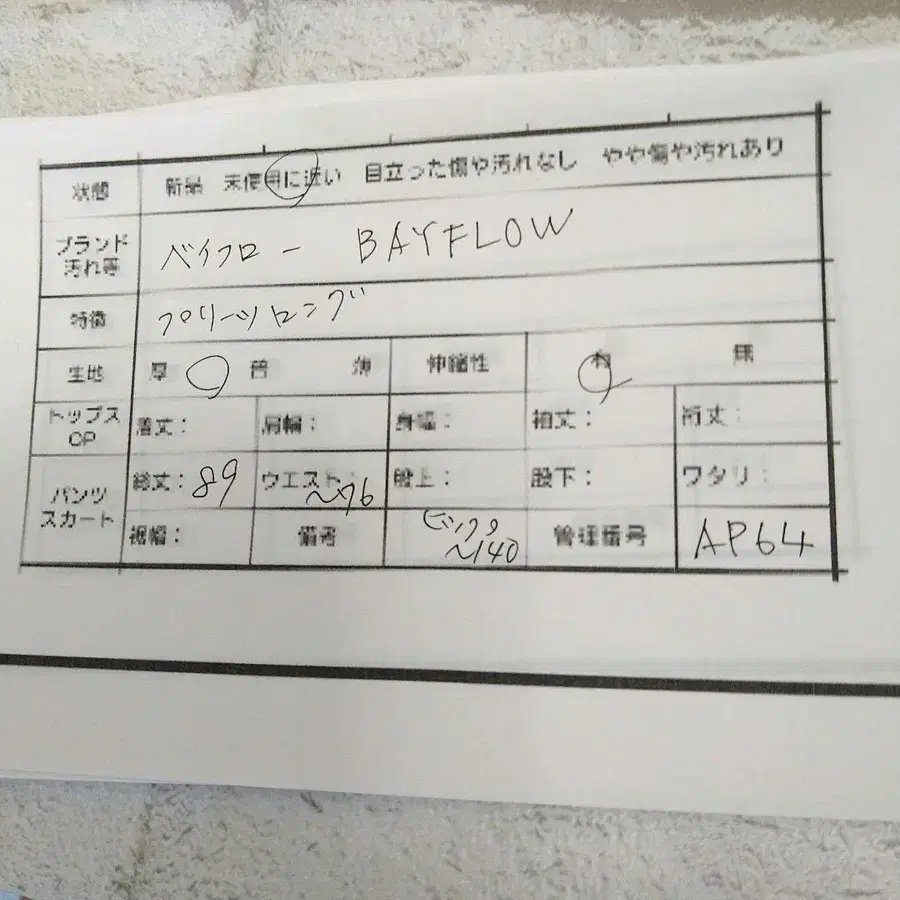 状態 新品 未使用に近い 目立った傷や汚れなし やや傷や汚れあり
ブランド 汚れ等 ベイフロー BAYFLOW
特徴 プリーツロング
生地 厚 普 薄 伸縮性 有 無
トップス OP 着丈: 肩幅: 身幅: 袖丈: 裄丈:
パンツ スカート 総丈: 89 ウエスト: 〜76 股上: 股下: ワタリ:
裾幅: 備考 ヒップ 〜140 管理番号 AP64